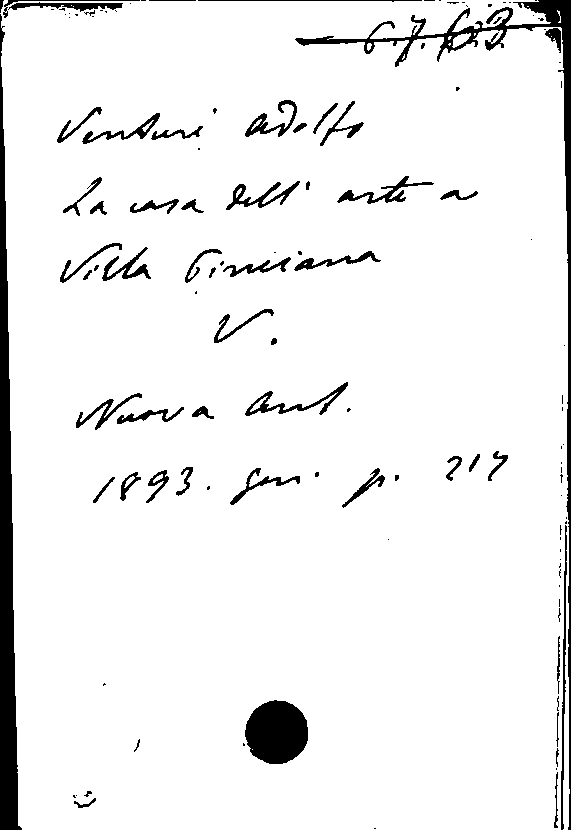 6.7.63
Venturi Adolfo
La casa dell' arte a
Villa Giuliana
V.
Nuova Ant.
1893. gen. p. 217